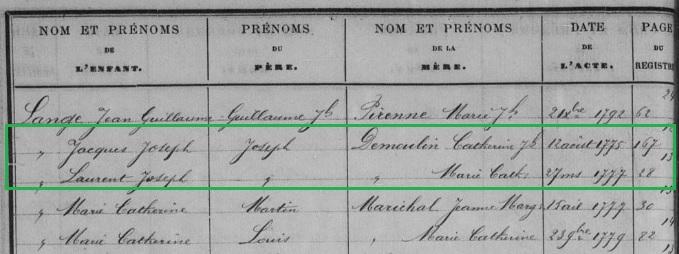 NOM ET PRÉNOMS PRÉNOMS NOM ET PRÉNOMS DATE PAGE
DE DU DE LA DE DU
L'ENFANT. PÈRE. MÈRE. L'ACTE. REGISTRE
Lange Jean Guillaume Guillaume Jh Pirenne Marie Jh 21 Xbre 1792 62
" Jacques Joseph Joseph Demoulin Catherine Jh 12 août 1775 167
" Laurent Joseph " " Marie Cath: 27 ms 1777 28
" Marie Catherine Martin Maréchal Jeanne Marg: 15 ail 1777 30
" Marie Catherine Louis " Marie Catherine 23 9bre 1779 82